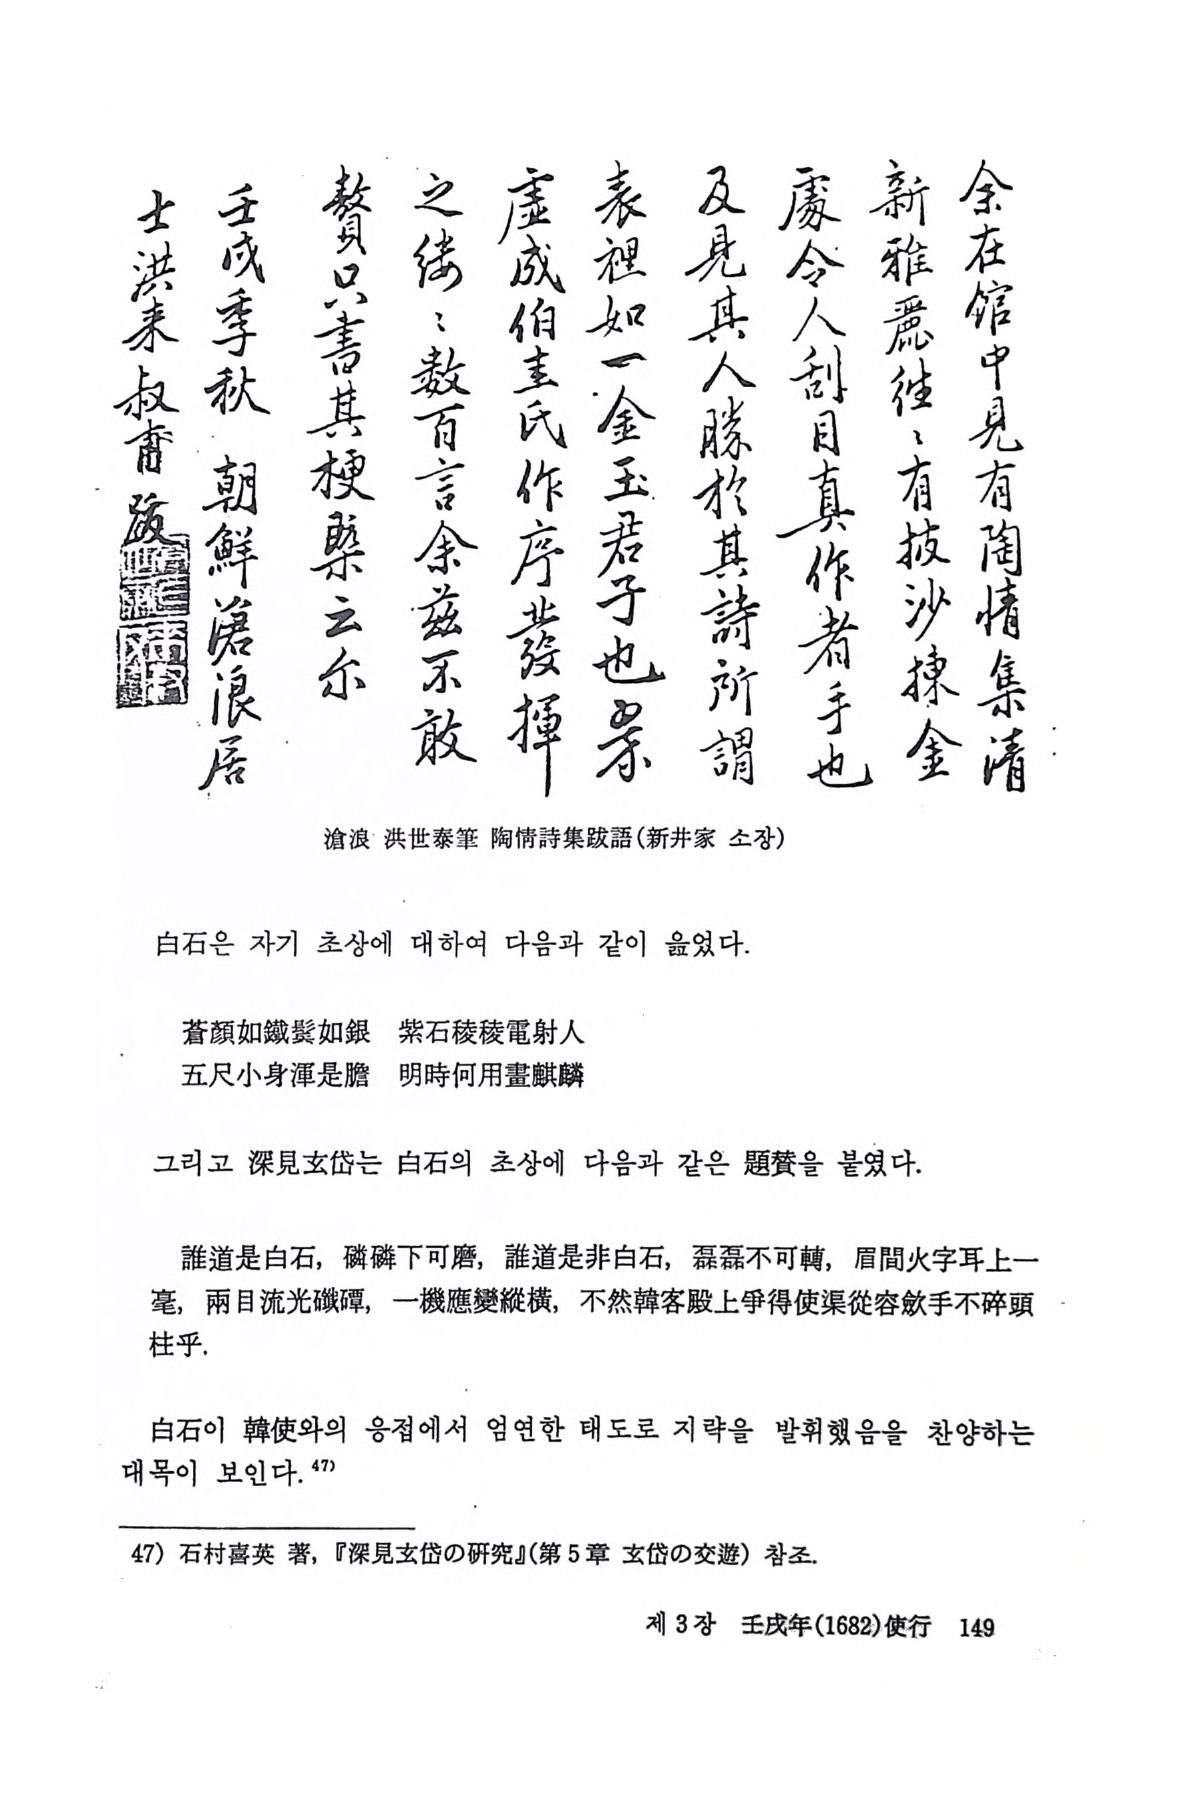 余在館中見有陶情集清
新雅麗往〻有披沙揀金
處令人刮目真作者手也
及見其人勝於其詩所謂
表裡如一金玉君子也
虛成伯圭氏作序發揮
之縷〻數百言余茲不敢
贅只書其梗槩云尔
壬戌季秋 朝鮮滄浪居
士洪来叔甫跋
滄浪 洪世泰筆 陶情詩集跋語(新井家 소장)
白石은 자기 초상에 대하여 다음과 같이 읊었다.
蒼顏如鐵鬂如銀 紫石稜稜電射人
五尺小身渾是膽 明時何用畫麒麟
그리고 深見玄岱는 白石의 초상에 다음과 같은 題贊을 붙였다.
誰道是白石, 磷磷下可磨, 誰道是非白石, 磊磊不可轉, 眉間火字耳上一
毫, 兩目流光礮磹, 一機應變縱橫, 不然韓客殿上爭得使渠從容斂手不碎頭
柱乎.
白石이 韓使와의 응접에서 엄연한 태도로 지략을 발휘했음을 찬양하는
대목이 보인다.47)
47) 石村喜英 著,『深見玄岱の研究』(第5章 玄岱の交遊) 참조.
제3장 壬戌年(1682)使行 149